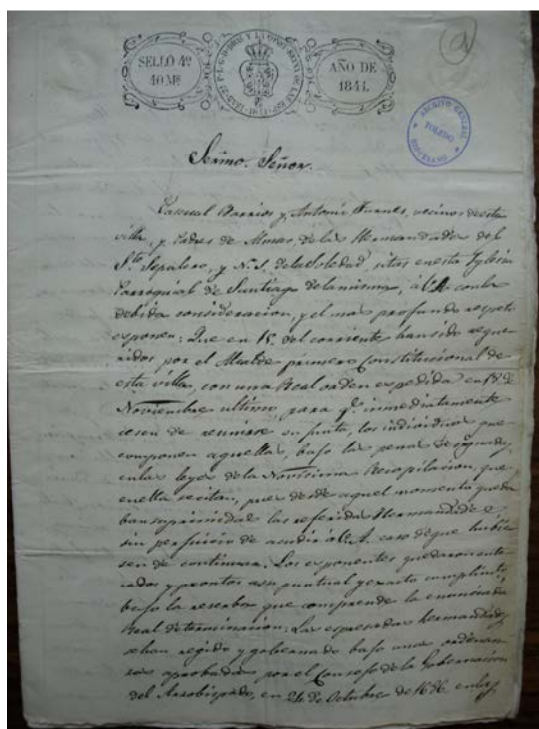 SELLO 4º
40 Ms
AÑO DE
1841.
ARCHIVO
TOLEDO
DIOCESANO
Sermo. Señor.
Pascual Barrios y Antonio Furnes, vecinos de esta
villa, y Padres de Almas, de las Hermandades del
Sto. Sepulcro, y N. S. de la Soledad, sitas en esta Iglesia
Parroquial de Santiago de la misma, á V. A. con la
debida consideracion, y el mas profundo respeto
exponen: Que en 15. del corriente han sido reque-
ridos por el Alcalde primero Constitucional de
esta villa, con una Real orden expedida en 13 de
Noviembre ultimo, para q.e inmediatamente
cesen de reunirse en junta, los individuos que
componen aquellas, bajo las penas
en las leyes de la Novisima Recopilacion, que
en ella se citan, pues desde aquel momento queda
ban suprimidas las referidas Hermandades
sin perjuicio de acudir á V. A. caso de que hubie
sen de continuar. Los exponentes quedaron ente
rados y prontos a su puntual y exacto cumplimto.
bajo la reserba que comprende la enunciada
Real determinacion: Las espresadas hermandades
se han regido y gobernado bajo unas ordenan
zas aprobadas por el Consejo de la Gobernacion
del Arzobispado, en 24 de Octubre de 1686 en las